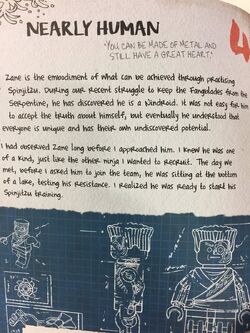 NEARLY HUMAN
4
"YOU CAN BE MADE OF METAL AND
STILL HAVE A GREAT HEART."
Zane is the embodiment of what can be achieved through practising
Spinjitzu. During our recent struggle to keep the Fangblades from the
Serpentine, he has discovered he is a Nindroid. It was not easy for him
to accept the truth about himself, but eventually he understood that
everyone is unique and has their own undiscovered potential.
I had observed Zane long before I approached him. I knew he was one
of a kind, just like the other ninja I wanted to recruit. The day we
met, before I asked him to join the team, he was sitting at the bottom
of a lake, testing his resistance. I realized he was ready to start his
Spinjitzu training.